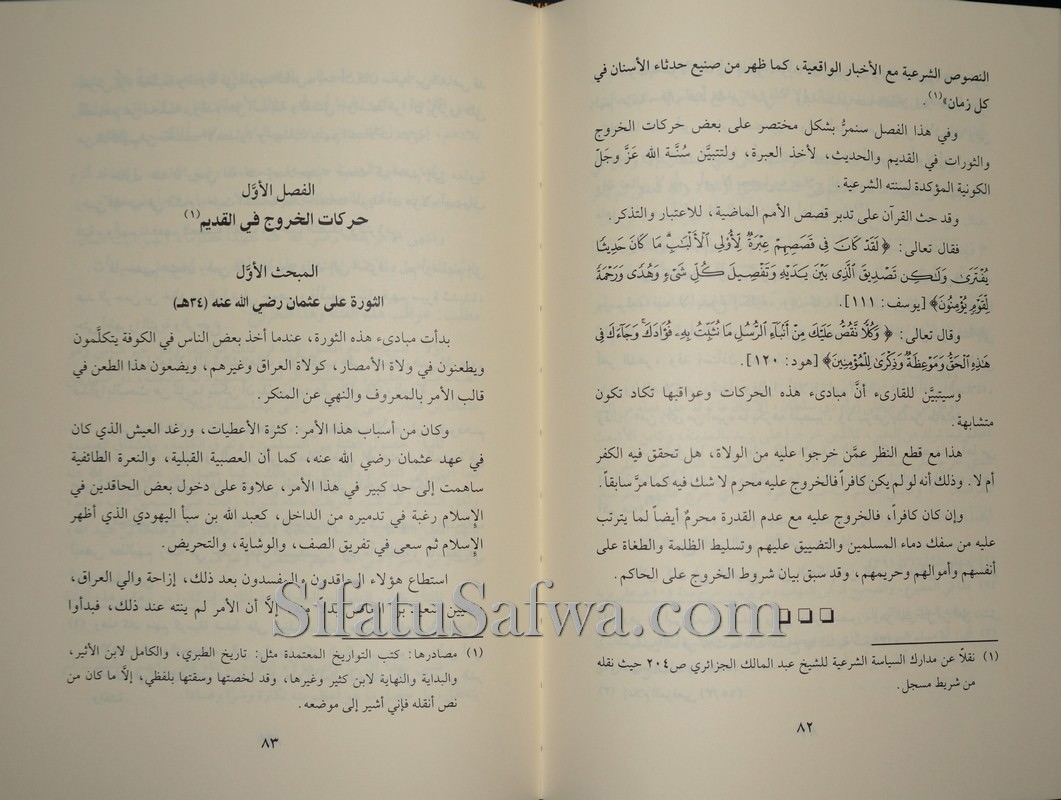 النصوص الشرعية مع الأخبار الواقعية، كما ظهر من صنيع حدثاء الأسنان في
كل زمان»(١).
وفي هذا الفصل سنمرُّ بشكل مختصر على بعض حركات الخروج
والثورات في القديم والحديث، لأخذ العبرة، ولتتبيَّن سُنَّة الله عَزَّ وجَلّ
الكونية المؤكدة لسنته الشرعية.
وقد حث القرآن على تدبر قصص الأمم الماضية، للاعتبار والتذكر.
فقال تعالى: ﴿لَقَدْ كَانَ فِي قَصَصِهِمْ عِبْرَةٌ لِّأُوْلِي الْأَلْبَابِ مَا كَانَ حَدِيثًا
يُفْتَرَى وَلَـٰكِن تَصْدِيقَ الَّذِي بَيْنَ يَدَيْهِ وَتَفْصِيلَ كُلِّ شَيْءٍ وَهُدًى وَرَحْمَةً
لِّقَوْمٍ يُؤْمِنُونَ﴾ [يوسف: ١١١].
وقال تعالى: ﴿وَكُلًّا نَّقُصُّ عَلَيْكَ مِنْ أَنبَاءِ الرُّسُلِ مَا نُثَبِّتُ بِهِ فُؤَادَكَ وَجَاءَكَ فِي
هَـٰذِهِ الْحَقُّ وَمَوْعِظَةٌ وَذِكْرَى لِلْمُؤْمِنِينَ﴾ [هود: ١٢٠].
وسيتبيَّن للقارىء أنَّ مبادىء هذه الحركات وعواقبها تكاد تكون
متشابهة.
هذا مع قطع النظر عمَّن خرجوا عليه من الولاة، هل تحقق فيه الكفر
أم لا. وذلك أنه لو لم يكن كافراً فالخروج عليه محرم لا شك فيه كما مرَّ سابقاً.
وإن كان كافراً، فالخروج عليه مع عدم القدرة محرمٌ أيضاً لما يترتب
عليه من سفك دماء المسلمين والتضييق عليهم وتسليط الظلمة والطغاة على
أنفسهم وأموالهم وحريمهم، وقد سبق بيان شروط الخروج على الحاكم.
(١) نقلاً عن مدارك السياسة الشرعية للشيخ عبد المالك الجزائري ص٢٠٤ حيث نقله
من شريط مسجل.
٨٢
الفصل الأوَّل
حركات الخروج في القديم(١)
المبحث الأوَّل
الثورة على عثمان رضي الله عنه (٣٤هـ)
بدأت مبادىء هذه الثورة، عندما أخذ بعض الناس في الكوفة يتكلَّمون
ويطعنون في ولاة الأمصار، كولاة العراق وغيرهم، ويضعون هذا الطعن في
قالب الأمر بالمعروف والنهي عن المنكر.
وكان من أسباب هذا الأمر: كثرة الأعطيات، ورغد العيش الذي كان
في عهد عثمان رضي الله عنه، كما أن العصبية القبلية، والنعرة الطائفية
ساهمت إلى حد كبير في هذا الأمر، علاوة على دخول بعض الحاقدين في
الإسلام رغبة في تدميره من الداخل، كعبد الله بن سبأ اليهودي الذي أظهر
الإسلام ثم سعى في تفريق الصف، والوشاية، والتحريض.
استطاع هؤلاء الحاقدون والمفسدون بعد ذلك، إزاحة والي العراق،
إلَّا أن الأمر لم ينته عند ذلك، فبدأوا
(١) مصادرها: كتب التواريخ المعتمدة مثل: تاريخ الطبري، والكامل لابن الأثير،
والبداية والنهاية لابن كثير وغيرها، وقد لخصتها وسقتها بلفظي، إلَّا ما كان من
نص أنقله فإني أشير إلى موضعه.
٨٣
SifatuSafwa.com